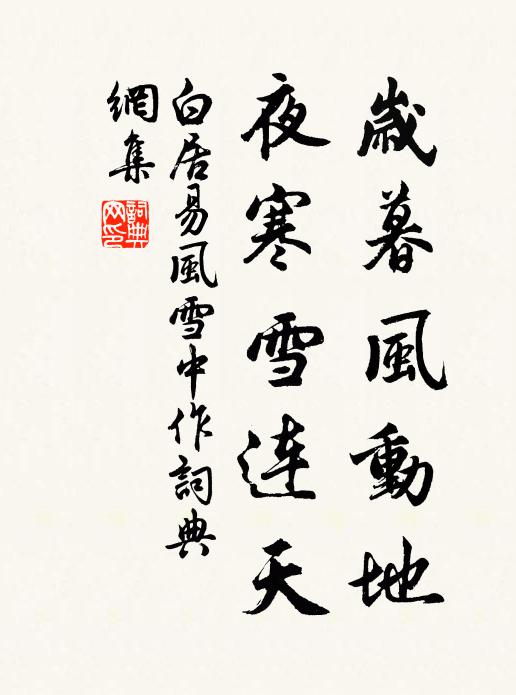 歲暮風動地
夜寒雪連天
白居易風雪中作詞典
網集
詞典
网印